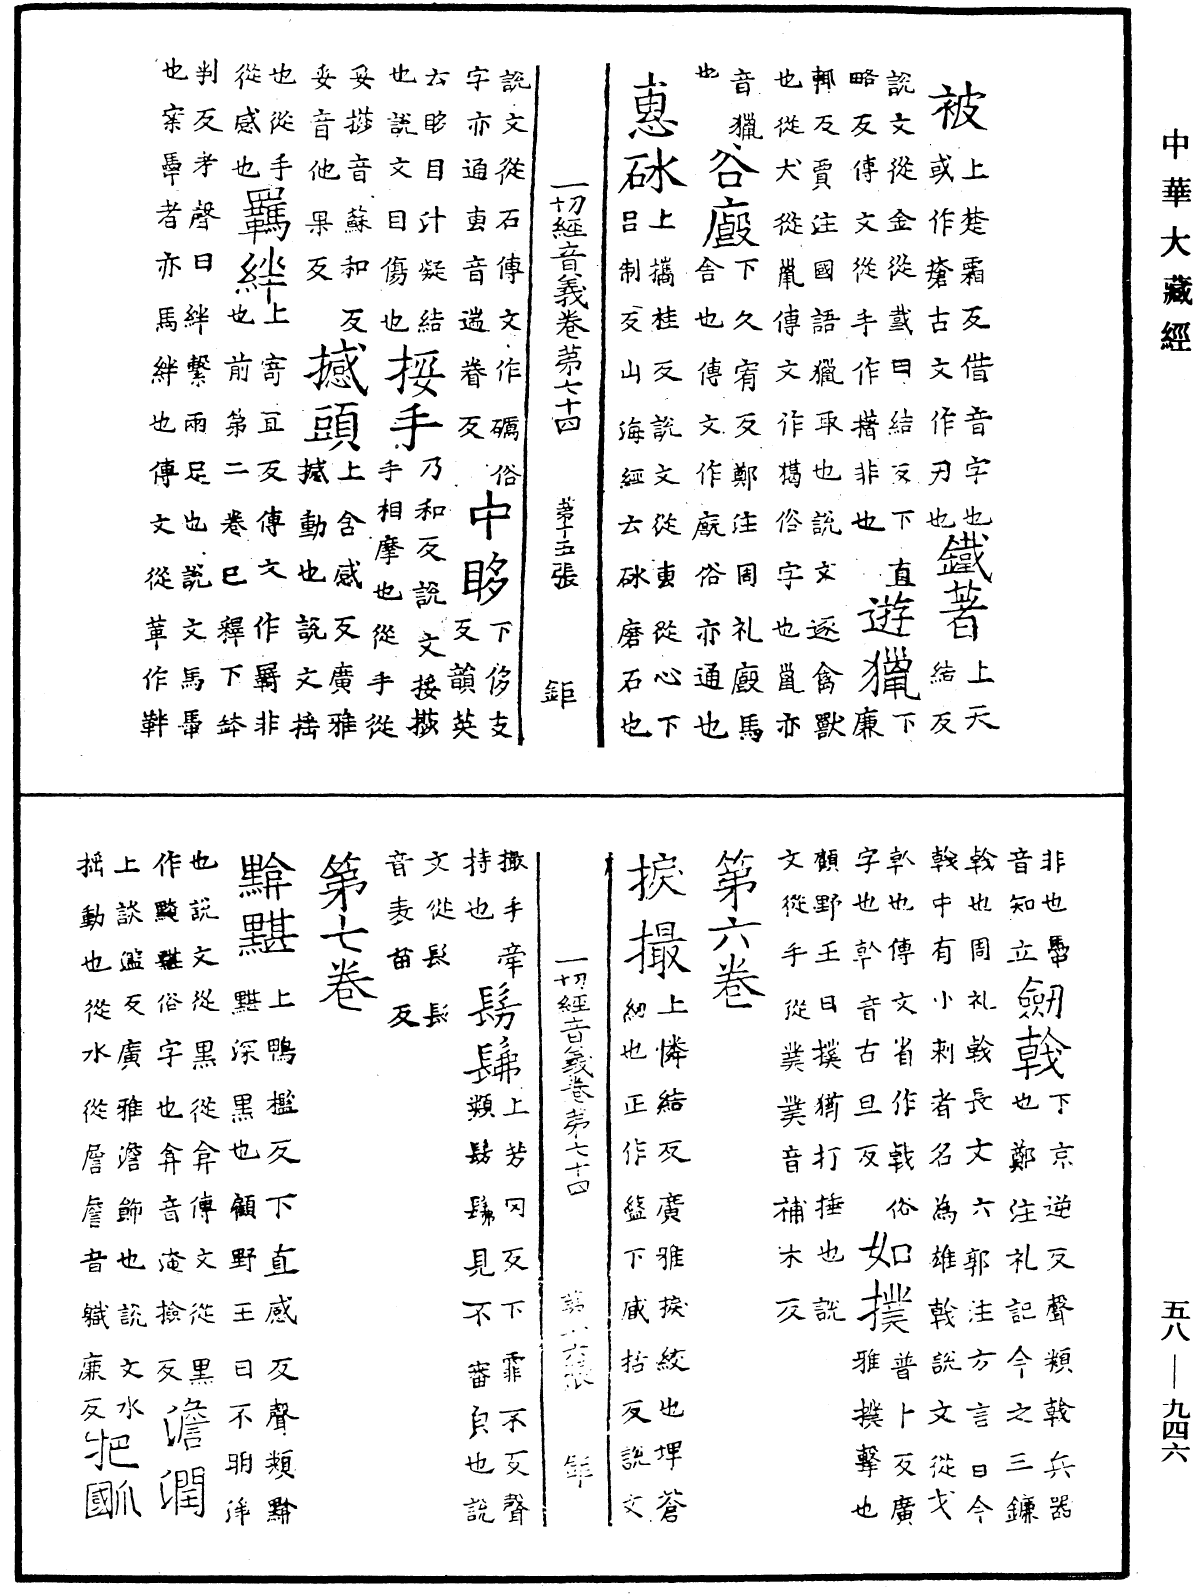 中華大藏經
被上楚霜反借音字也
或作瘡古文作刃也鐵著上天結反
說文從金從𢧜曰結反下直
略反傳文從手作撯非也遊獵下廉
輒反賈注國語獵取也說文逐禽獸
也從犬從巤傳文作猲俗字也巤亦
音獵谷廄下久宥反鄭注周礼廄馬
也舍也傳文作廐俗亦通也
恵砅上攜桂反說文從叀從心下
呂制反山海經云砅磨石也
一切經音義卷第七十四 第十五張 鉅
說文從石傳文作礪俗
字亦通叀音遄眷反中眵下侈支反韻英
云眵目汁凝結
也說文目傷也挼手乃和反說文挼摧
手相摩也從手從
妥挱音蘇和反
妥音他果反撼頭上含感反廣雅
撼動也說文搖
也從手
從感也羈絆上寄宜反傳文作羈非
也前第二卷已釋下絆
判反考聲曰絆繫兩足也說文馬馽
也案馽者亦馬絆也傳文從革作靽
非也馽
音知立劒戟下京逆反聲類戟兵器
也鄭注礼記今之三鐮
戟也周礼戟長丈六郭注方言曰今
戟中有小刺者名為雄戟說文從戈
倝也傳文省作戟俗
字也倝音古旦反如撲普卜反廣
雅撲擊也
顧野王曰撲猶打捶也說
文從手從菐菐音補木反
第六卷
捩撮上憐結反廣雅捩絞也埤蒼
紉也正作盭下㦮括反說文
一切經音義卷第七十四 第十六張 鉅
撮手牽
持也髣髴上芳罔反下霏不反聲
類髣髴見不審皃也說
文從髟髟
音表苗反
第七卷
黭黮上鴨檻反下直感反聲類黭
黮深黑也顧野王曰不明淨
也說文從黒從弇傳文從黒
作黤黮俗字也弇音淹撿反澹潤
上談濫反廣雅澹飾也說文水
搖動也從水從詹詹音軄廉反爮國
五八—九四六